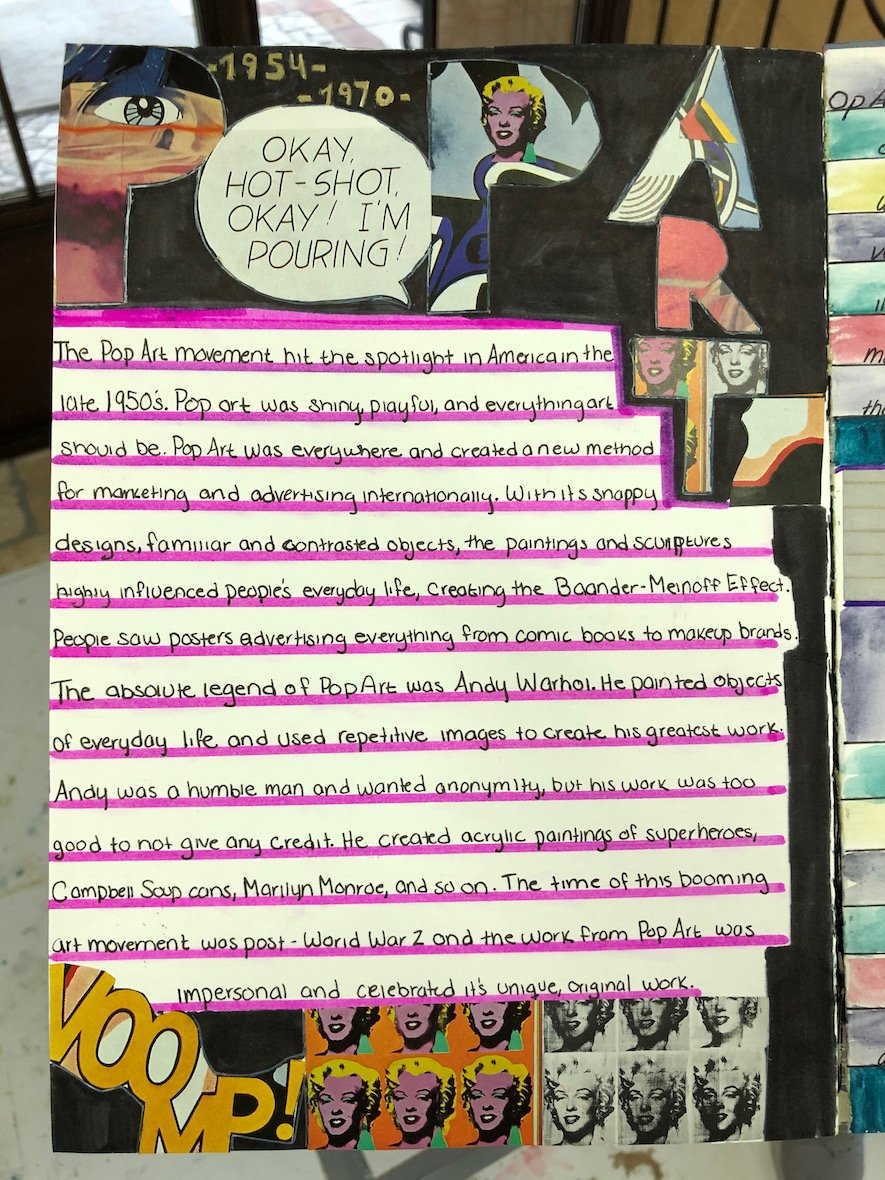 -1954-
-1970-
POP
ART
OKAY,
HOT-SHOT,
OKAY! I'M
POURING!
The Pop Art movement hit the spotlight in America in the
late 1950's. Pop art was shiny, playful, and everything art
should be. Pop Art was everywhere and created a new method
for marketing and advertising internationally. With its snappy
designs, familiar and contrasted objects, the paintings and sculptures
highly influenced people's everyday life, creating the Baander-Meinoff Effect.
People saw posters advertising everything from comic books to makeup brands.
The absolute legend of Pop Art was Andy Warhol. He painted objects
of everyday life and used repetitive images to create his greatest work.
Andy was a humble man and wanted anonymity, but his work was too
good to not give any credit. He created acrylic paintings of superheroes,
Campbell Soup cans, Marilyn Monroe, and so on. The time of this booming
art movement was post-World War 2 and the work from Pop Art was
impersonal and celebrated it's unique, original work.
VOOMP!